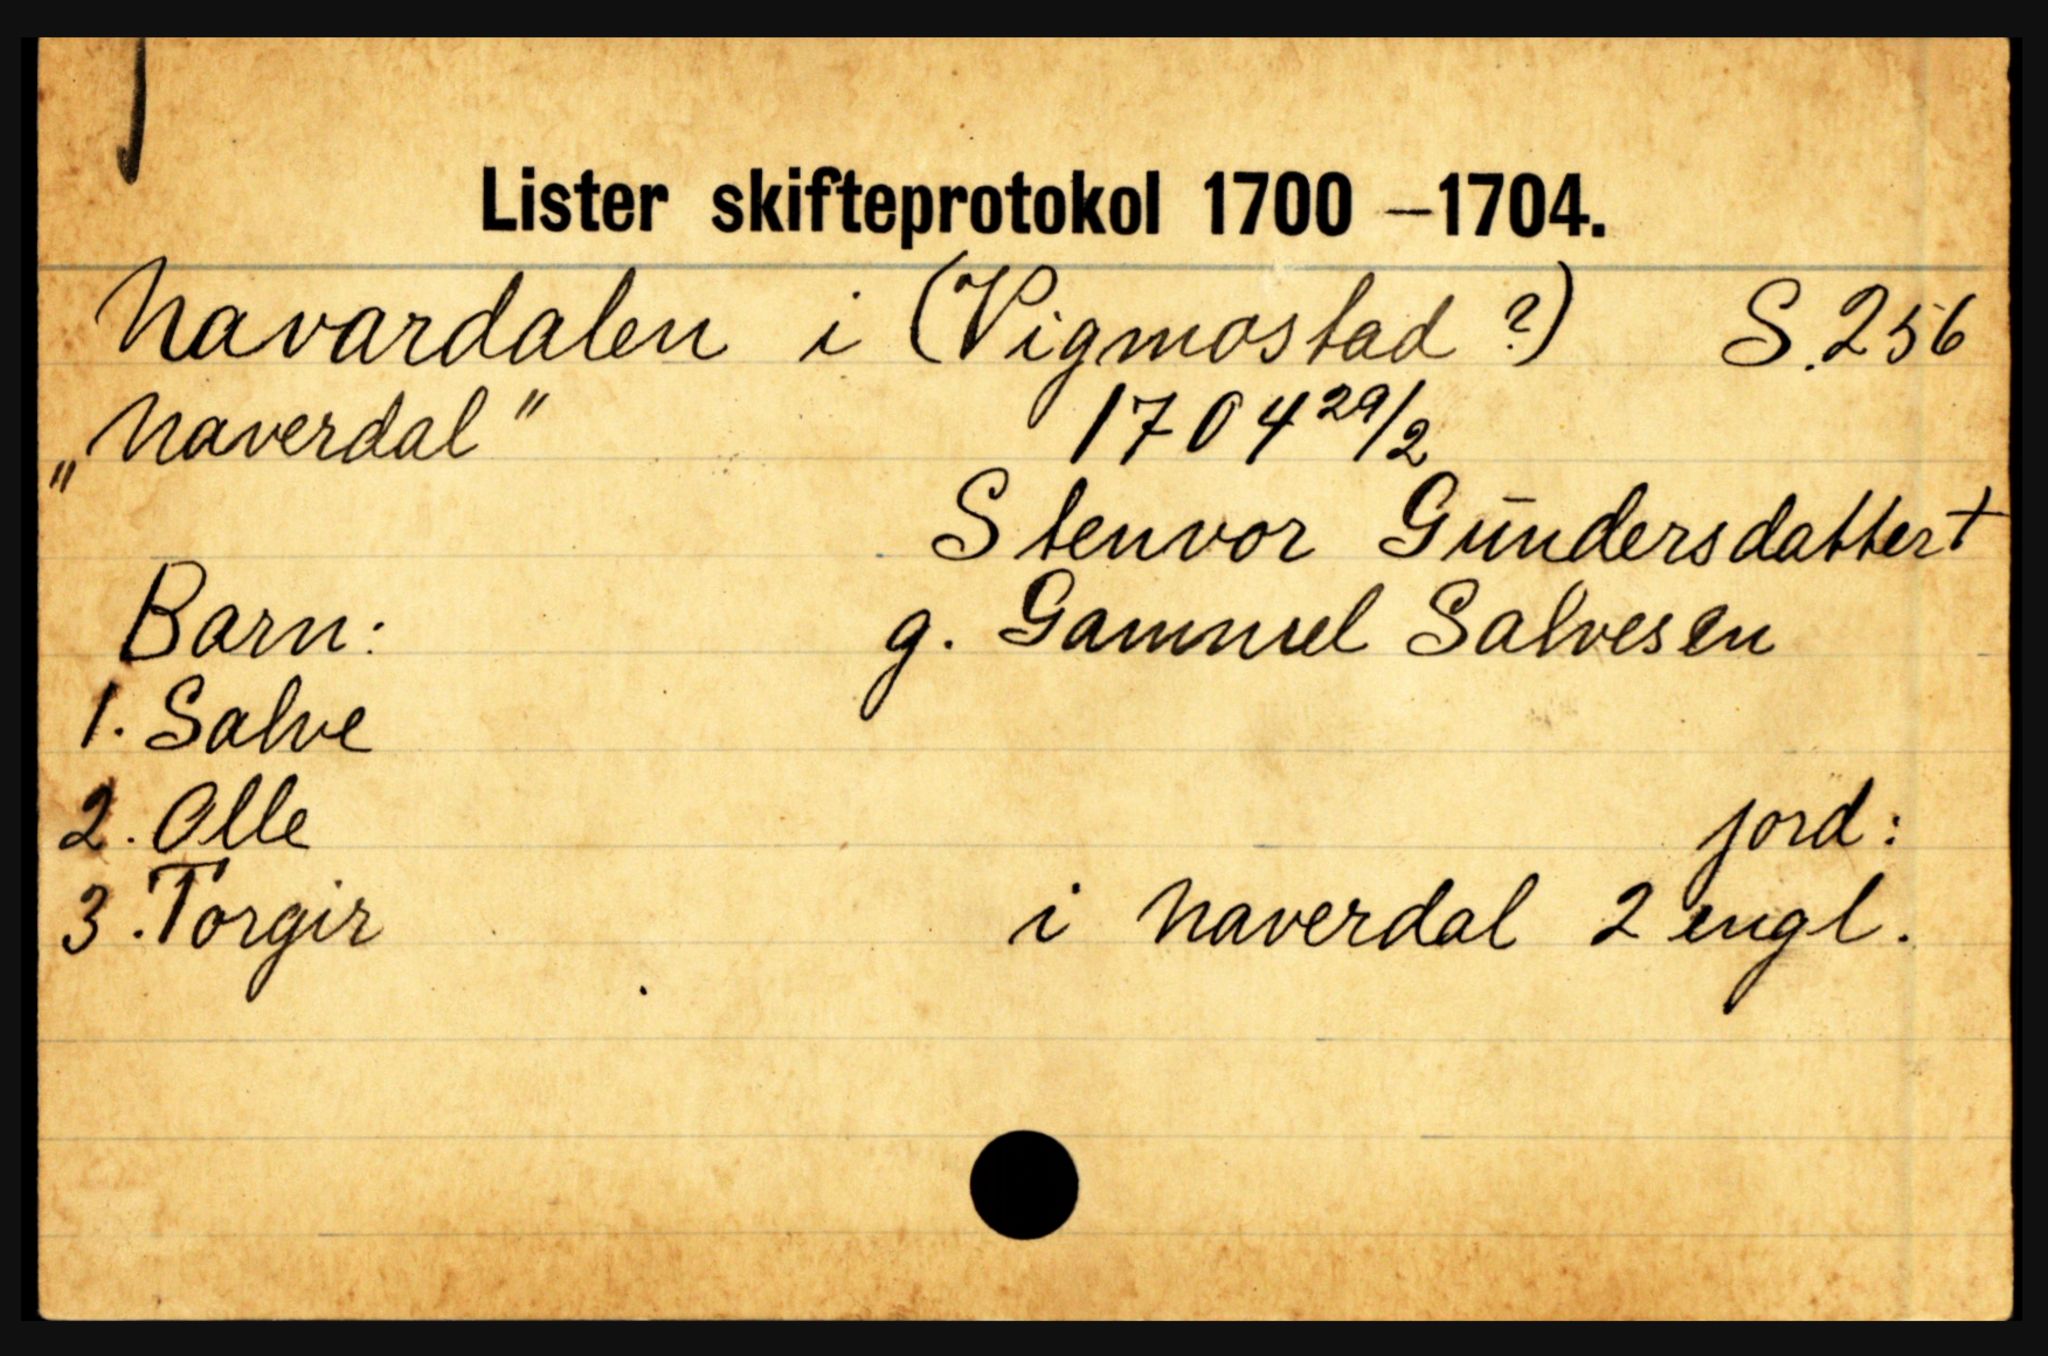 Lister skifteprotokol 1700 –1704.
Navardalen i (Vigmostad ?) S. 256
„Naverdal" 1704 29/2
Stenvor Gundersdatter †
Barn: g. Gammel Salvesen
1. Salve
2. Olle jord:
3. Torgir i Naverdal 2 engl.